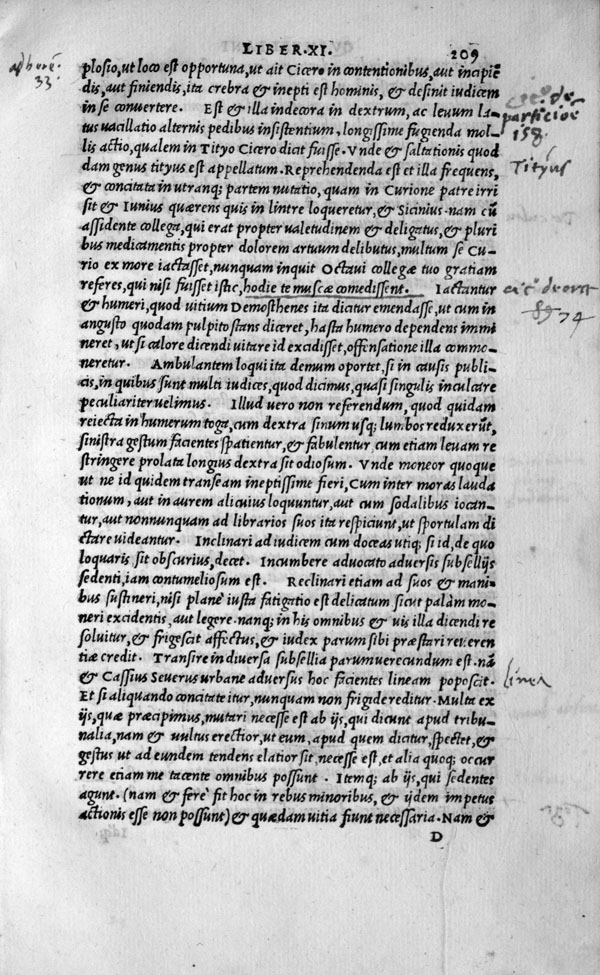 LIBER·XI.
209
plosio, ut loco est opportuna, ut ait Cicero in contentionibus, aut incipiē
dis, aut finiendis, ita crebra & inepti est hominis, & definit iudicem
in se conuertere. Est & illa indecora in dextrum, ac leuum la-
tus uacillatio alternis pedibus insistentium, longissime fugienda mol-
lis actio, qualem in Tityo Cicero dicit fuisse. Vnde & saltationis quod
dam genus tityus est appellatum. Reprehendenda est et illa frequens,
& concitata in utranq; partem nutatio, quam in Curione patre irri
sit & Iunius quærens quis in lintre loqueretur, & Sicinius· nam cū
assidente collega, qui erat propter ualetudinem & deligatus, & pluri
bus medicamentis propter dolorem artuum delibutus, multum se Cu-
rio ex more iactasset, nunquam inquit Octaui collegæ tuo gratiam
referes, qui nisi fuisset istic, hodie te muscæ comedissent. Iactantur
& humeri, quod uitium Demosthenes ita dicitur emendasse, ut cum in
angusto quodam pulpito stans diceret, hasta humero dependens immi
neret, ut si calore dicendi uitare id excidisset, offensatione illa commo-
neretur. Ambulantem loqui ita demum oportet, si in causis publi-
cis, in quibus sunt multi iudices, quod dicimus, quasi singulis inculcare
peculiariter uelimus. Illud uero non referendum, quod quidam
reiecta in humerum toga, cum dextra sinum usq; lumbos reduxerūt,
sinistra gestum facientes spatientur, & fabulentur, cum etiam leuam re
stringere prolata longius dextra sit odiosum. Vnde moneor quoque
ut ne id quidem transeam ineptissime fieri, Cum inter moras lauda
tionum, aut in aurem alicuius loquuntur, aut cum sodalibus iocan-
tur, aut nonnunquam ad librarios suos ita respiciunt, ut sportulam di
ctare uideantur. Inclinari ad iudicem cum doceas utiq; si id, de quo
loquaris sit obscurius, decet. Incumbere aduocato aduersis subsellijs
sedenti, iam contumeliosum est. Reclinari etiam ad suos & mani-
bus sustineri, nisi planè iusta fatigatio est delicatum sicut palàm mo-
neri excidentis, aut legere· nanq; in his omnibus & uis illa dicendi re
soluitur, & frigescit affectus, & iudex parum sibi præstari reueren
tiæ credit. Transire in diuersa subsellia parum uerecundum est· nā
& Cassius Seuerus urbane aduersus hoc facientes lineam poposcit.
Et si aliquando concitate itur, nunquam non frigide reditur· Multa ex
ijs, quæ præcipimus, mutari necesse est ab ijs, qui dicunt apud tribu-
nalia, nam & uultus erectior, ut eum, apud quem dicitur, spectet, &
gestus ut ad eundem tendens elatior sit, necesse est, et alia quoq; occur
rere etiam me tacente omnibus possunt. Itemq; ab ijs, qui sedentes
agunt. (nam & ferè fit hoc in rebus minoribus, & ijdem impetus
actionis esse non possunt) & quædam uitia fiunt necessaria. Nam &
D
33·
de
158
Tityus
74
linea